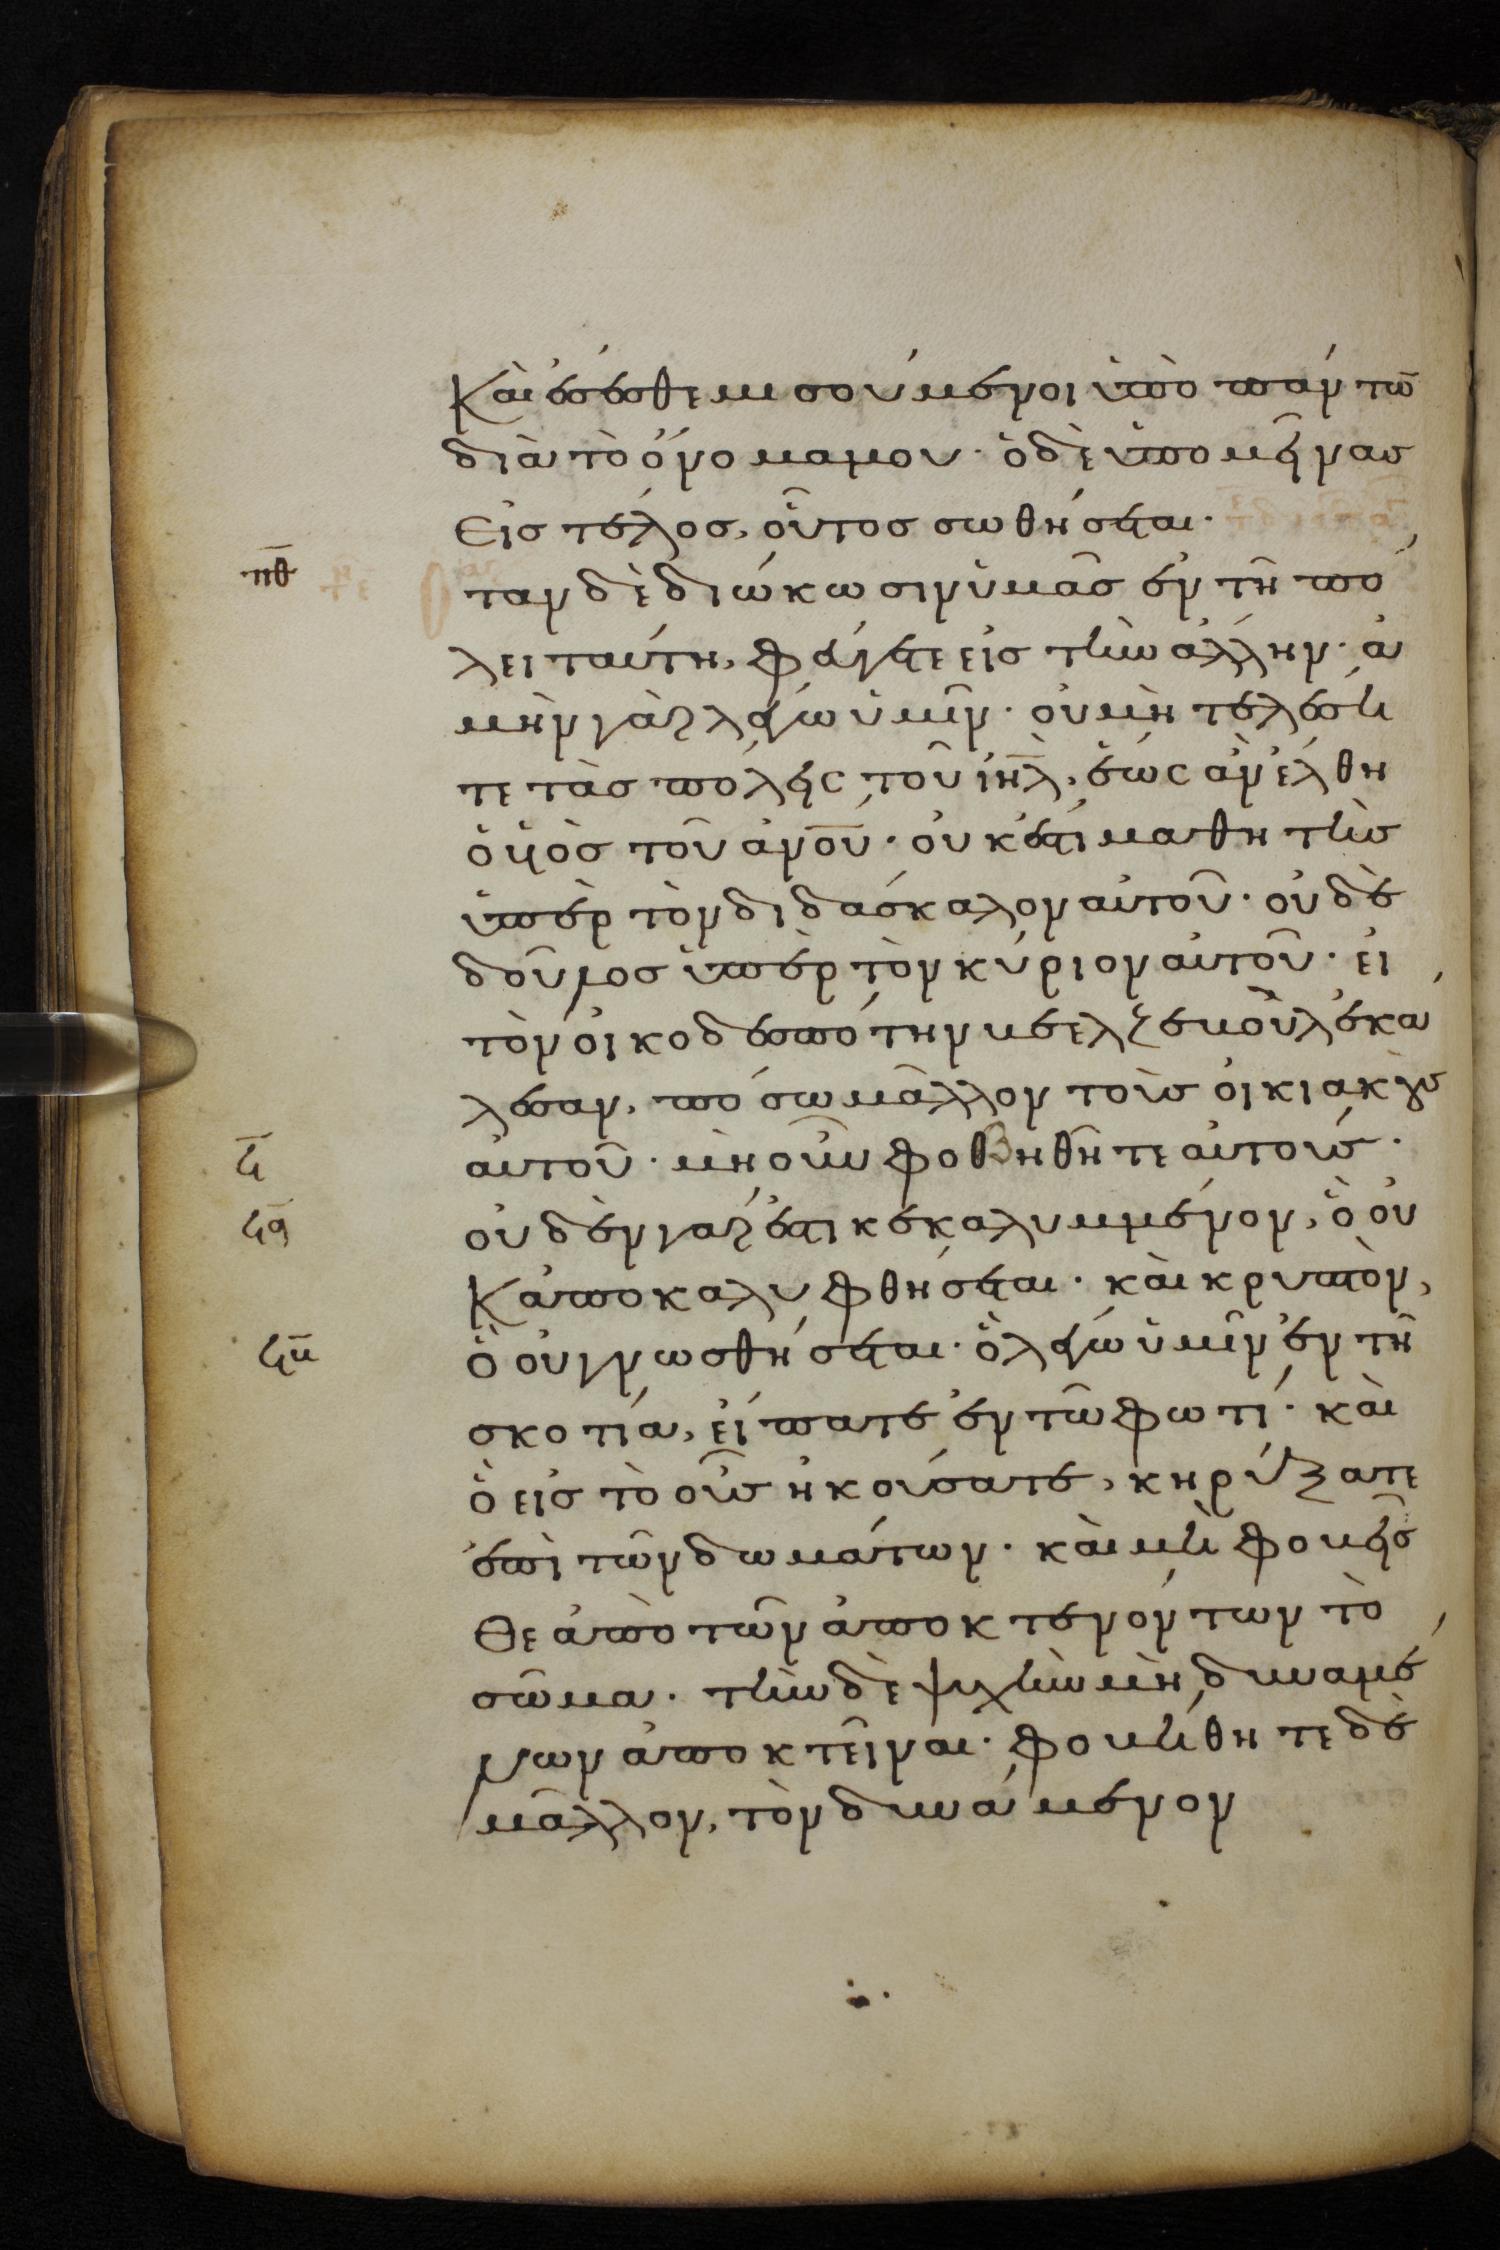 Καὶ ἔσεσθε μισούμενοι ὑπὸ πάντω̄
διὰ τὸ ὄνομά μου· ὁ δὲ ὑπομείνας
Εἰς τέλος, οὗτος σωθήσεται·
π̄θ̄ ταν δὲ διώκωσιν ὑμᾶς ἐν τῆ πό
λει ταύτη, φεύγετε εἰς τὴν ἄλλην· ἀ
μὴν γὰρ λέγω ὑμῖν· οὐ μὴ τελέση
τε τὰς πόλεις τοῦ ιη̄λ, ἕως ἂν ἔλθη
ὁ υἱὸς τοῦ ἀν̄ου· οὐκ ἔστι μαθητὴς
ὑπὲρ τὸν διδάσκαλον αὐτοῦ· οὐδὲ
δοῦλος ὑπὲρ τὸν κύριον αὐτοῦ· εἰ
τὸν οἰκοδεσπότην βεελζεβοὺλ ἐκά
λεσαν, πόσω μᾶλλον τοὺς οἰκιακοὺς
ϟ̄ αὐτοῦ· μὴ οὖν φοβηθῆτε αὐτούς·
ϟᾱ οὐδὲν γάρ ἐστι κεκαλυμμένον, ὃ οὐ
Κ ἀποκαλυφθήσεται· καὶ κρυπτὸν,
ϟβ̄ Ὃ οὐ γνωσθήσεται· ὃ λέγω ὑμῖν ἐν τῆ
σκοτία, εἴπατε ἐν τῶ φωτί· καὶ
ὃ εἰς τὸ οὖς ἠκούσατε, κηρύξατε
ἐπὶ τῶν δωμάτων· καὶ μὴ φοβεῖσ
Θε ἀπὸ τῶν ἀποκτενόντων τὸ
σῶμα· τὴν δὲ ψυχὴν μὴ δυναμέ
νων ἀποκτεῖναι· φοβήθητε δὲ
μᾶλλον, τὸν δυνάμενον